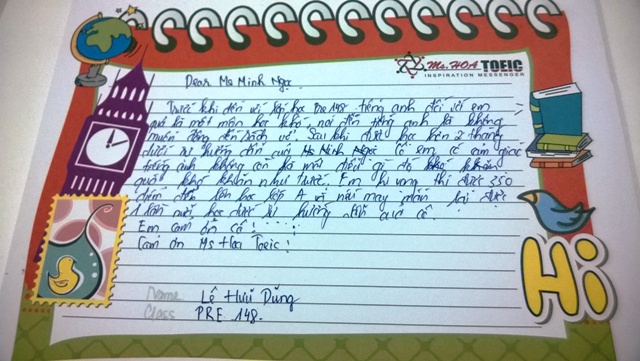 Ms. HOA TOEIC
INSPIRATION MESSENGER
Dear Ms Minh Ngọc
Trước khi đến với lớp học Pre 148 tiếng anh đối với em
quả là một môn học khó, nói đến tiếng anh là không
muốn động đến sách vở. Sau khi được học hơn 2 tháng
dưới sự hướng dẫn của Ms Minh Ngọc em có cảm giác
tiếng anh không còn là một điều gì đó
quá khó khăn như trước. Em hi vọng thi được 350
điểm để lên học lớp A và nếu may mắn lại được
1 lần nữa học dưới sự hướng dẫn của cô.
Em cảm ơn cô!
Cảm ơn Ms Hoa Toeic!
Hi
Name Lê Hữu Dũng
Class PRE 148.